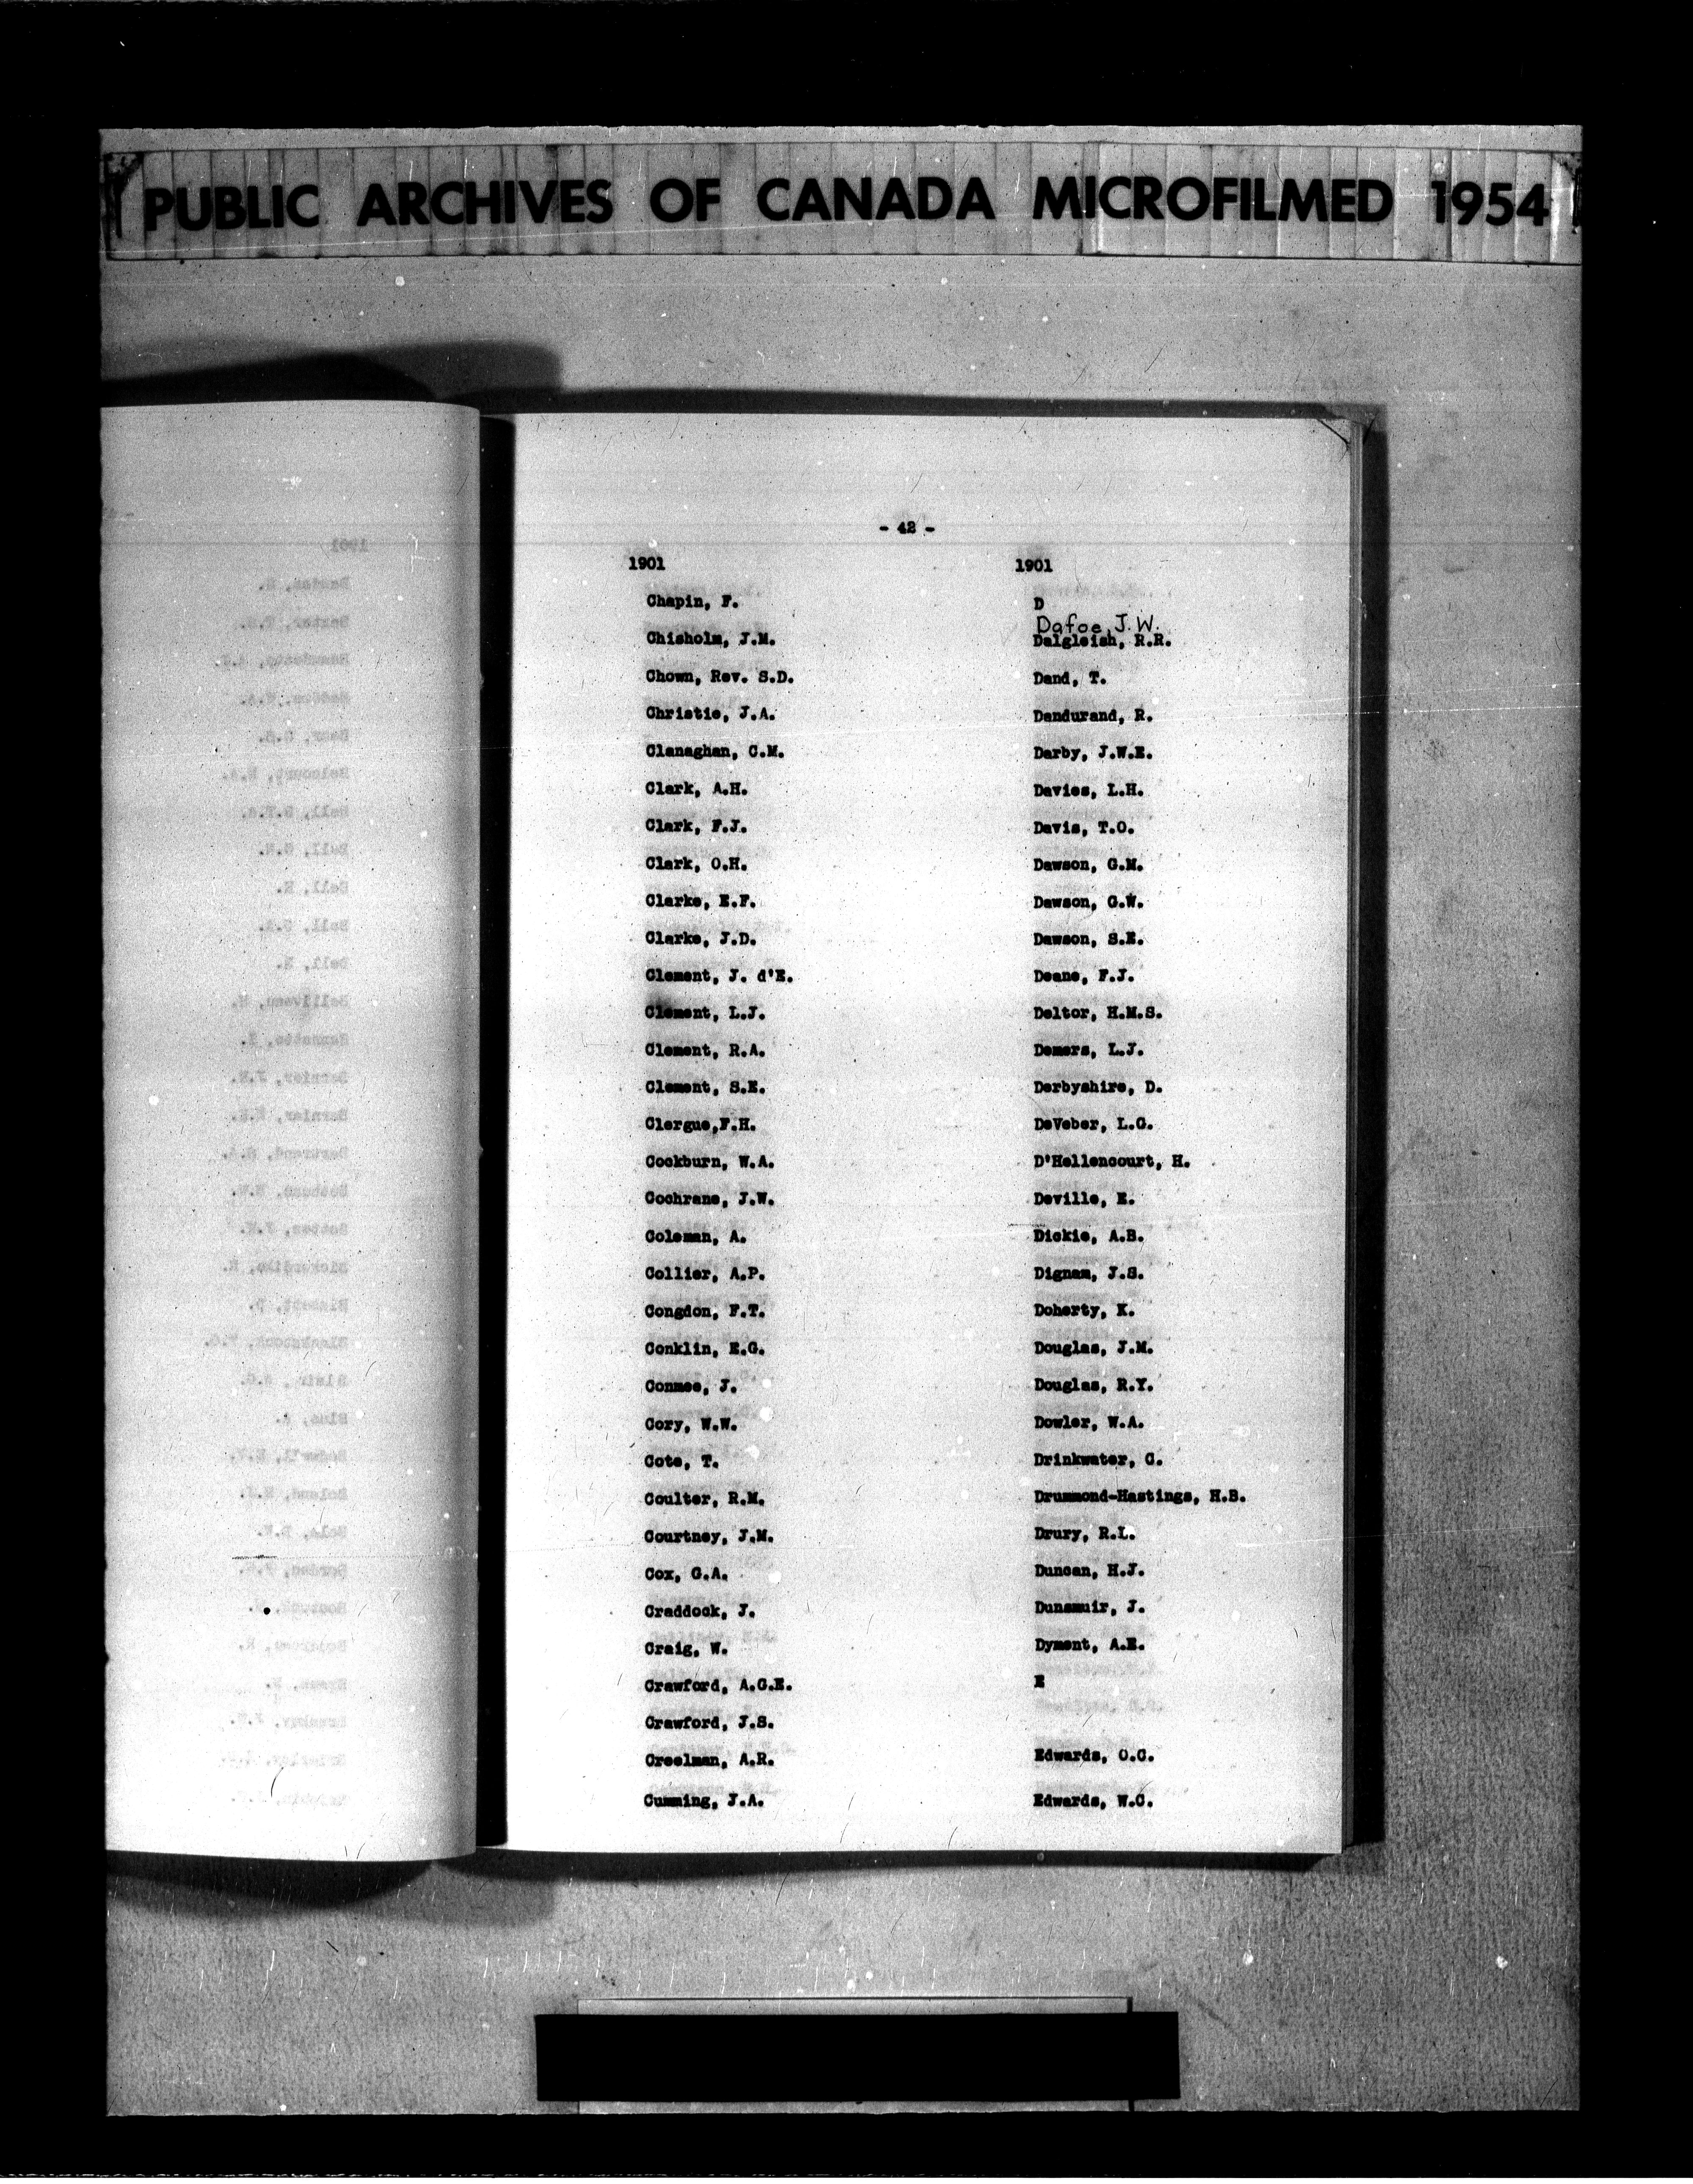 PUBLIC ARCHIVES OF CANADA MICROFILMED 1954
- 42 -
1901
Chapin, F.
Chisholm, J.M.
Chown, Rev. S.D.
Christie, J.A.
Clanaghan, C.M.
Clark, A.H.
Clark, F.J.
Clark, O.H.
Clarke, E.F.
Clarke, J.D.
Clement, J. d'E.
Clement, L.J.
Clement, R.A.
Clement, S.E.
Clergue,F.H.
Cockburn, W.A.
Cochrane, J.W.
Coleman, A.
Collier, A.P.
Congdon, F.T.
Conklin, E.G.
Conmee, J.
Cory, W.W.
Cote, T.
Coulter, R.M.
Courtney, J.M.
Cox, G.A.
Craddock, J.
Craig, W.
Crawford, A.G.E.
Crawford, J.S.
Creelman, A.R.
Cumming, J.A.
1901
D
Dafoe, J.W.
Dalgleish, R.R.
Dand, T.
Dandurand, R.
Darby, J.W.E.
Davies, L.H.
Davis, T.O.
Dawson, G.M.
Dawson, G.W.
Dawson, S.E.
Deane, F.J.
Deltor, H.M.S.
Demers, L.J.
Derbyshire, D.
DeVeber, L.G.
D'Hellencourt, H.
Deville, E.
Dickie, A.B.
Dignam, J.S.
Doherty, K.
Douglas, J.M.
Douglas, R.Y.
Dowler, W.A.
Drinkwater, C.
Drummond-Hastings, H.B.
Drury, R.L.
Duncan, H.J.
Dunsmuir, J.
Dyment, A.E.
E
Edwards, O.C.
Edwards, W.C.